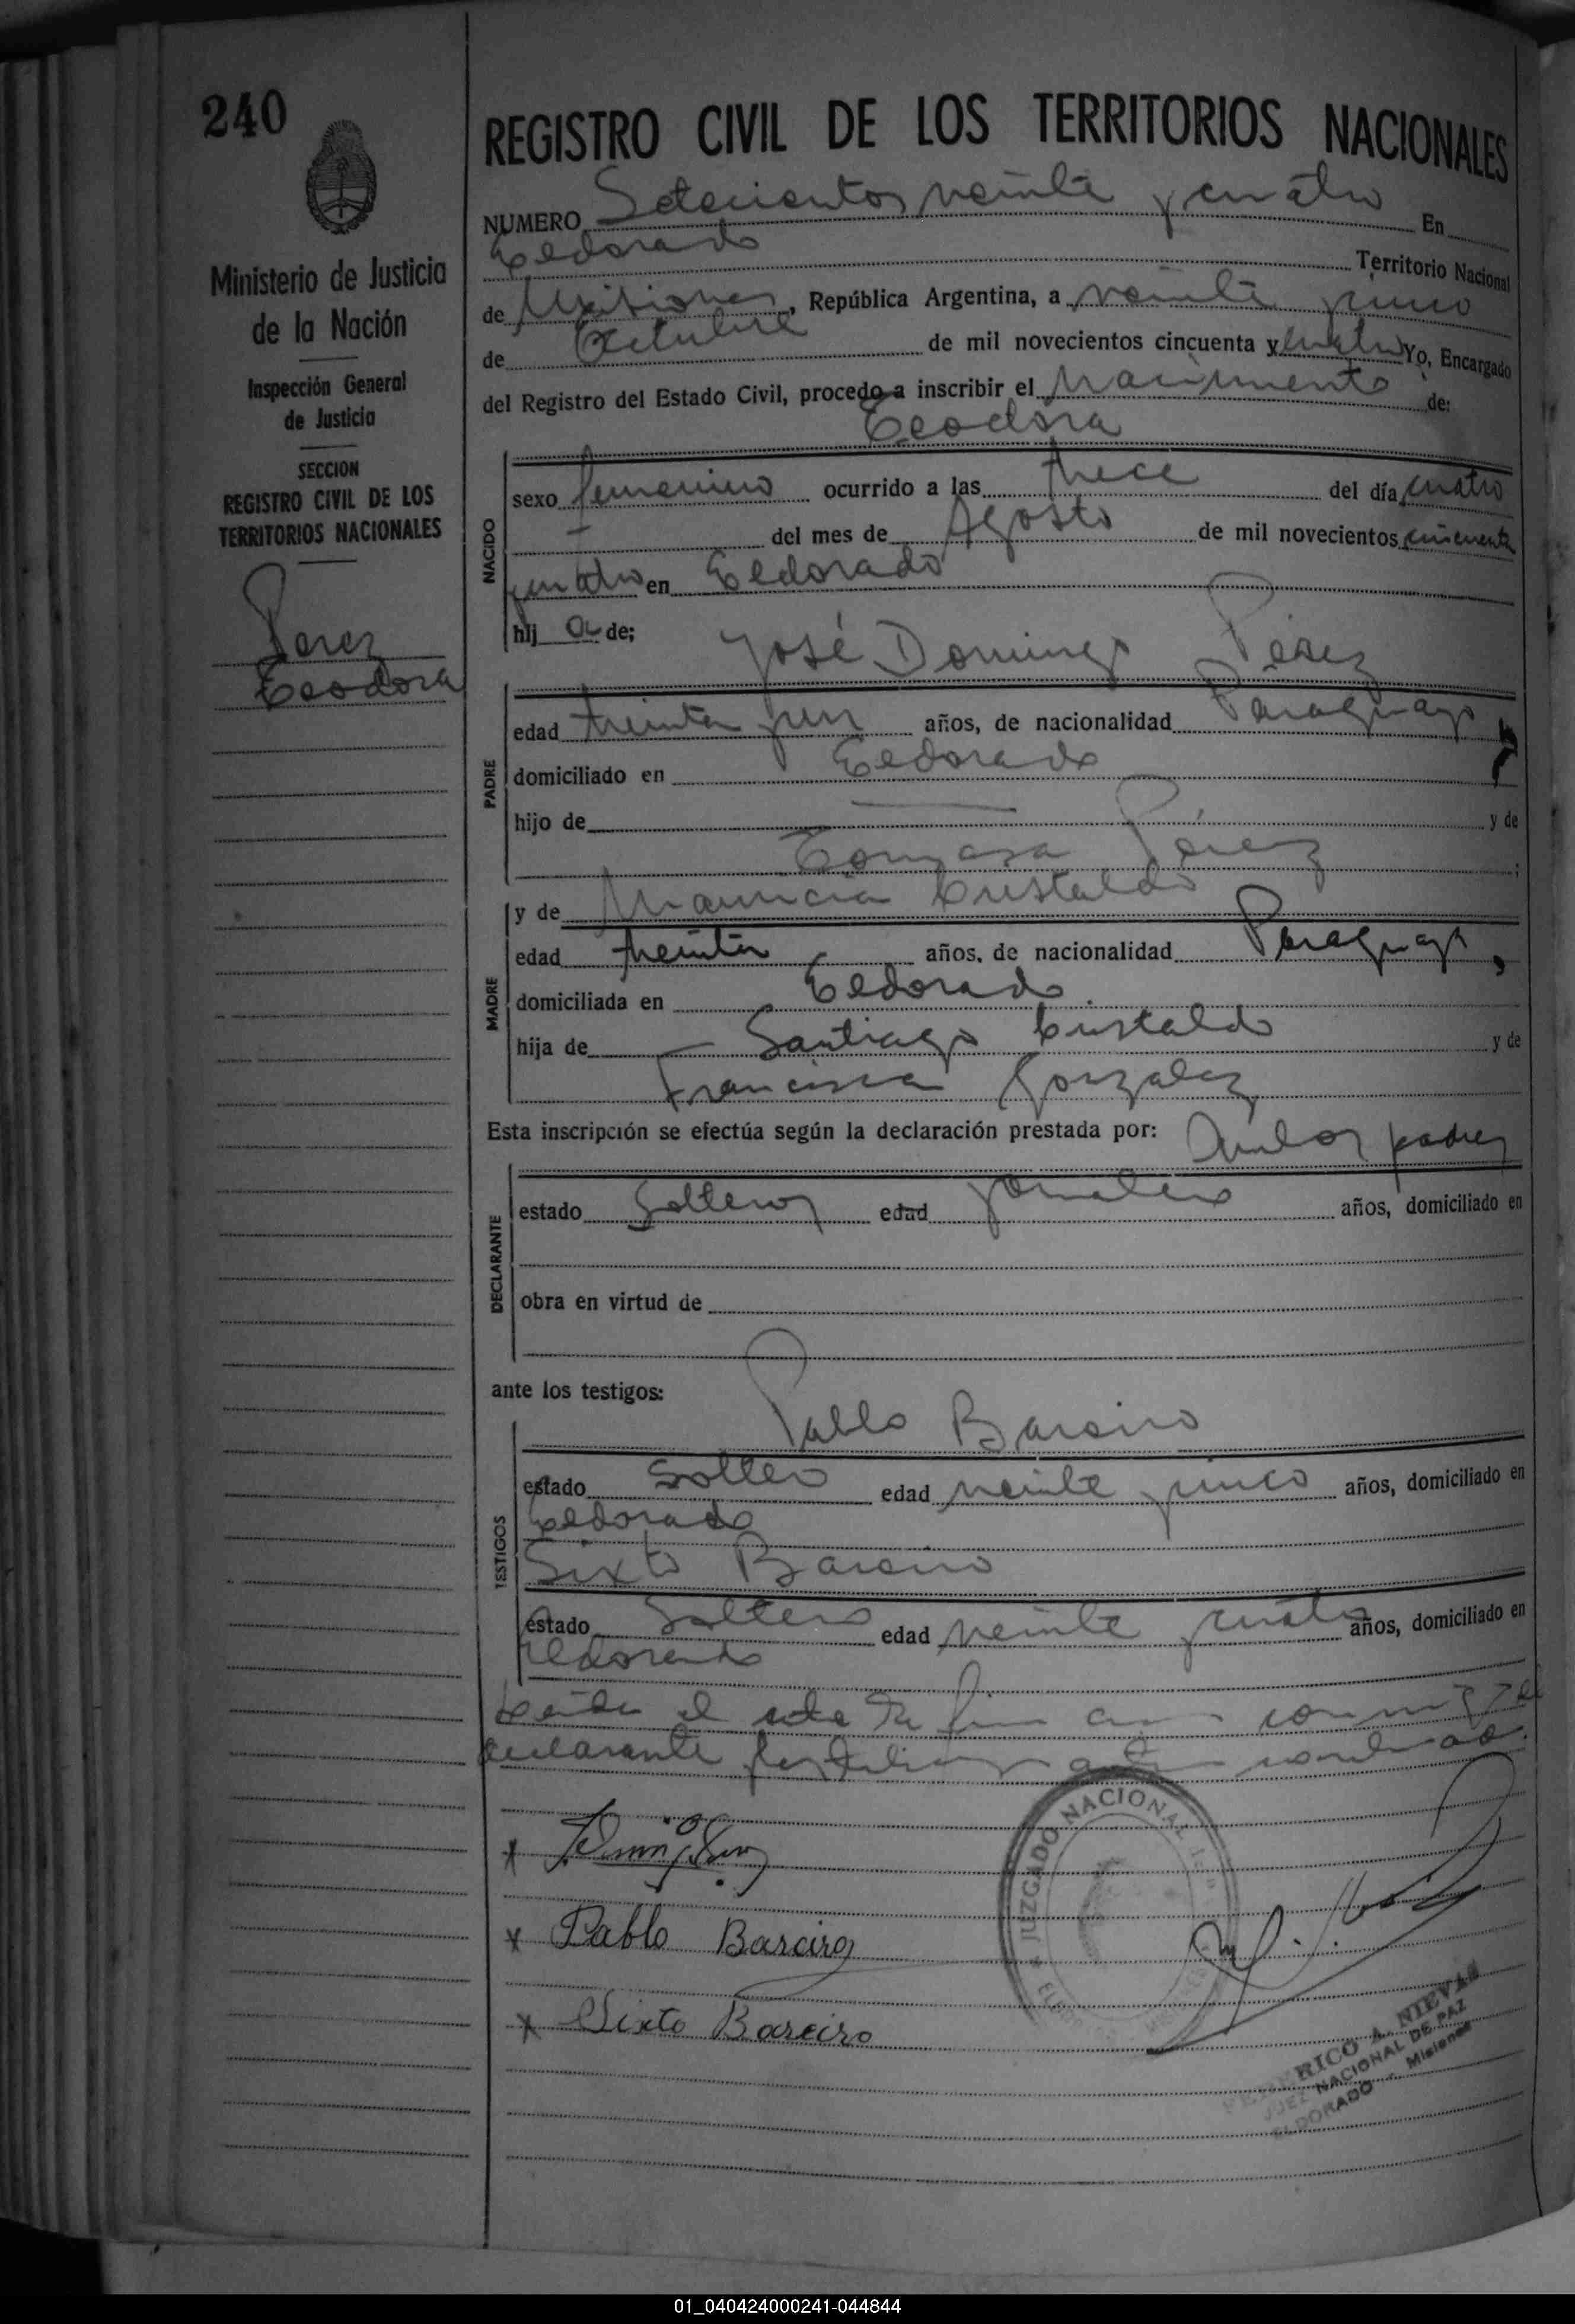 240
Ministerio de Justicia
de la Nación
Inspección General
de Justicia
SECCION
REGISTRO CIVIL DE LOS
TERRITORIOS NACIONALES
Perez
Teodora
REGISTRO CIVIL DE LOS TERRITORIOS NACIONALES
NUMERO Setecientos veinte y cuatro En
Eldorado Territorio Nacional
de Misiones, República Argentina, a veinte y cinco
de Octubre de mil novecientos cincuenta y cuatro Yo, Encargado
del Registro del Estado Civil, procedo a inscribir el Nacimiento de:
Teodora
NACIDO
sexo femenino ocurrido a las trece del día cuatro
del mes de Agosto de mil novecientos cincuenta
y cuatro en Eldorado
hij a de;
José Domingo Pérez
PADRE
edad treinta y un años, de nacionalidad Paraguayo
domiciliado en Eldorado
hijo de y de
Tomasa Pérez ;
y de Mauricia Cristaldo
MADRE
edad treinta años, de nacionalidad Paraguaya,
domiciliada en Eldorado
hija de Santiago Cristaldo y de
Francisca Gonzalez
Esta inscripción se efectúa según la declaración prestada por: Ambos padres
DECLARANTE
estado Solteros edad jornalero años, domiciliado en
obra en virtud de
ante los testigos:
Pablo Bareiro
TESTIGOS
estado Soltero edad veinte y cinco años, domiciliado en
Eldorado
Sixto Bareiro
estado Soltero edad veinte y cuatro años, domiciliado en
Eldorado
Leida el acta la conmigo el
declarante testigos
x
x Pablo Bareiro
x Sixto Bareiro
JUZGADO NACIONAL
ELDORADO
FEDERICO A. NIEVAS
JUEZ NACIONAL DE PAZ
ELDORADO - Misiones
01_040424000241-044844